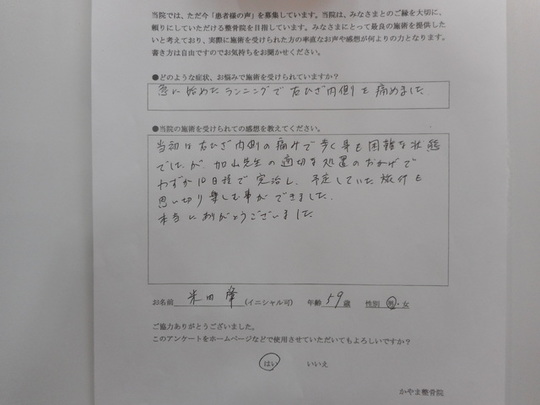 当院では、ただ今「患者様の声」を募集しています。当院は、みなさまとのご縁を大切に、
頼りにしていただける整骨院を目指しています。みなさまにとって最良の施術を提供した
いと考えており、実際に施術を受けられた方の率直なお声や感想が何よりの力となります。
書き方は自由ですのでお気持ちをお聞かせください。
●どのような症状、お悩みで施術を受けられていますか?
急に始めたランニングで右ひざ内側を痛めました
●当院の施術を受けられての感想を教えてください。
当初は右ひざ内側の痛みで歩く事も困難な状態
でしたが、加山先生の適切な処置のおかげで
わずか10日程で完治し、予定していた旅行も
思い切り楽しむ事ができました。
本当にありがとうございました
お名前 米田 隆 (イニシャル可) 年齢 59 歳 性別 男・女
ご協力ありがとうございました。
このアンケートをホームページなどで使用させていただいてもよろしいですか?
はい いいえ
かやま整骨院